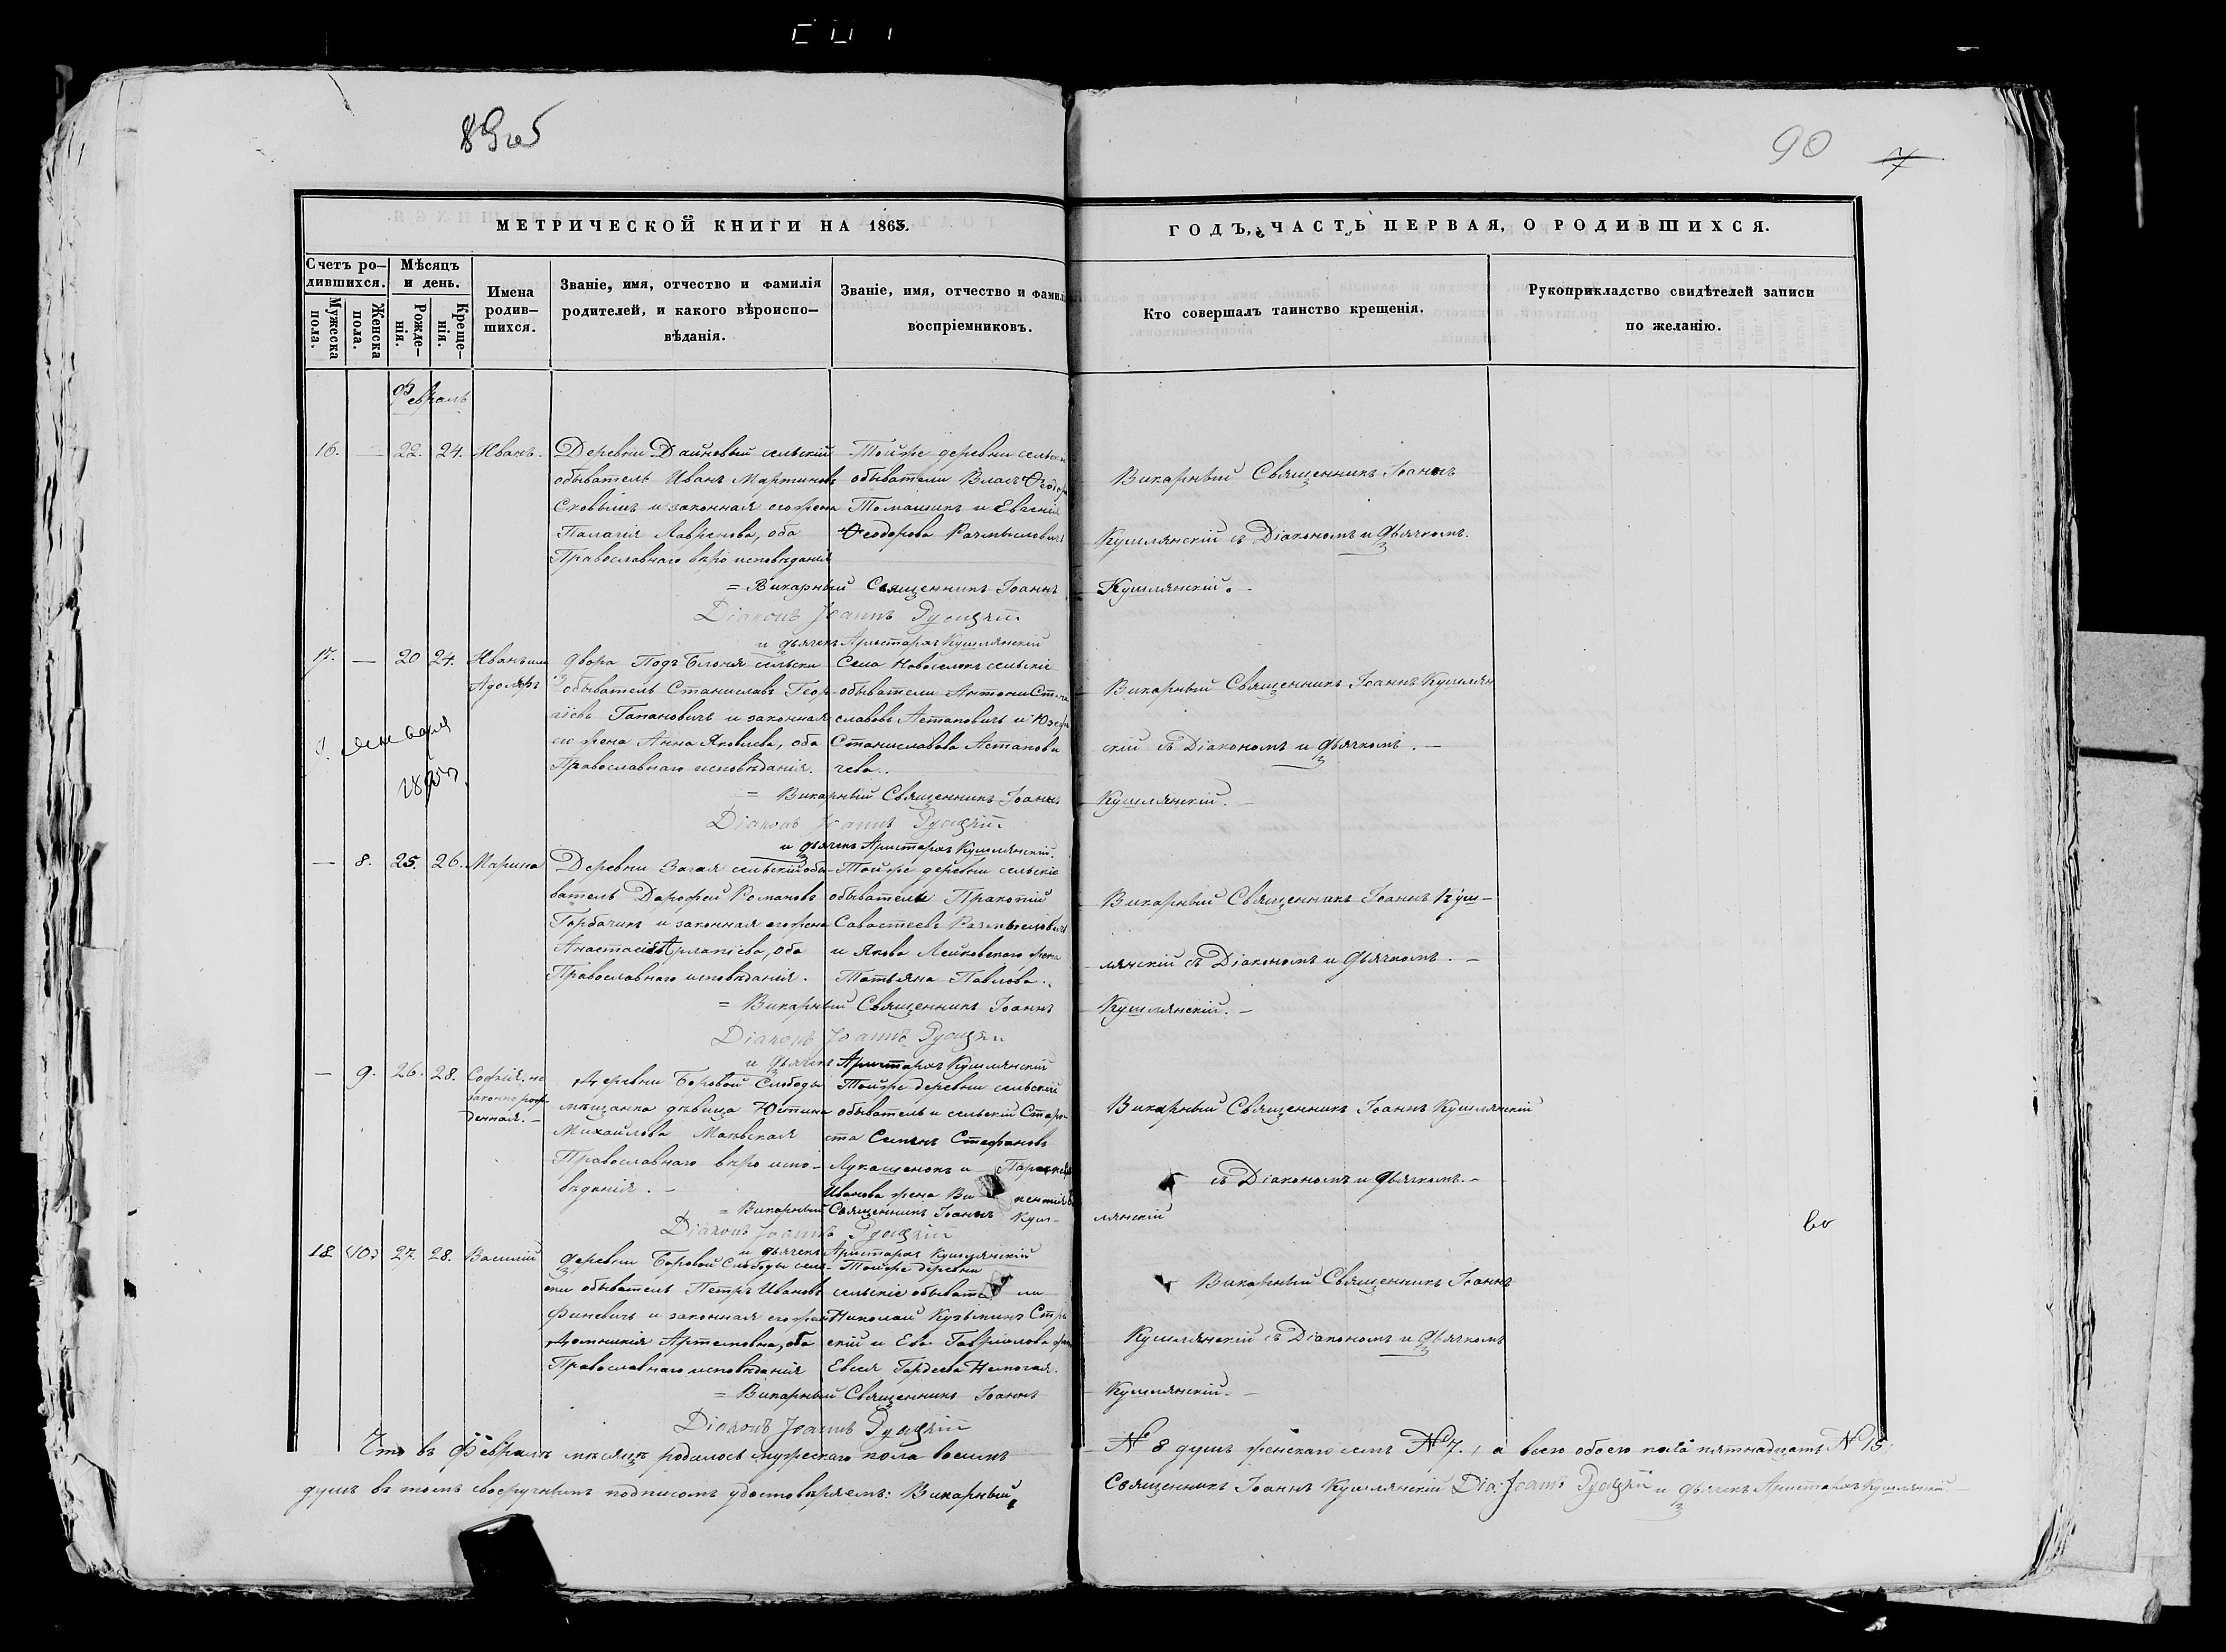 89 об
90
7
МЕТРИЧЕСКОЙ КНИГИ НА 1865.
ГОДЪ, ЧАСТЬ ПЕРВАЯ, О РОДИВШИХСЯ.
Счетъ ро-
дившихся.
Мужеска пола.
Женска пола.
Мѣсяцъ
и день.
Рожде-
нія.
Креще-
нія.
Имена
родив-
шихся.
Званіе, имя, отчество и фамилія
родителей, и какого вѣроиспо-
вѣданія.
Званіе, имя, отчество и фамил
воспріемниковъ.
Кто совершалъ таинство крещенія.
Рукоприкладство свидѣтелей записи
по желанію.
Февраль
16. — 22. 24. Иванъ.
Деревни Дайновый сельскій
обыватель Иванъ Мартиновъ
и законная его жена
Палагія Лавренова, оба
Православнаго вѣроисповѣданія
Тойже деревни сельскіе
обыватели Власъ Феодор
Томашикъ и Евгенія
Феодорова
Викарный Священникъ Іоаннъ
Кушлянскій съ Діакономъ и дьячкомъ.
= Викарный Священникъ Іоаннъ Кушлянскій. —
Діаконъ Іоаннъ
и дьячекъ Аристархъ Кушлянскій
17. — 20 24. Иванъ или
Адольфъ
двора Подъ сельски
обыватель Станиславъ Геор-
гіевъ Гапановичъ и законная
его жена Анна Яковлева, оба
Православнаго исповѣданія.
Села Новоселокъ сельскіе
обыватели Антони Стани
славовъ Астаповичъ и Юзефа
Станиславова Астапови
чева..
Викарный Священникъ Іоаннъ Кушлян
скій съ Діакономъ и дьячкомъ. —
января
= Викарный Священникъ Іоаннъ Кушлянскій. —
Діаконъ Іоаннъ
и дьячекъ Аристархъ Кушлянскій.
— 8. 25. 26. Марина
Деревни сельскій обы-
ватель Дарофей Романовъ
Горбачикъ и законная его жена
Анастасія оба
Православнаго исповѣданія.
Тойже деревни сельскіе
обыватели Пракопій
Савостеевъ
и Якова Лейковскаго жена
Татьяна Павлова..
Викарный Священникъ Іоаннъ Куш-
лянскій съ Діакономъ и дьячкомъ. —
= Викарный Священникъ Іоаннъ Кушлянскій. —
Діаконъ Іоаннъ
и дьячекъ Аристархъ Кушлянскій
— 9. 26. 28. София. не
законнорож-
денная. —
Деревни Боровой Слободы
мѣщанка дѣвица Юстина
Михайлова
Православнаго вѣроиспо-
вѣданія. —
Тойже деревни сельскій
обыватель и сельскій Старо-
ста Семенъ Стефановъ
Лукашенокъ и
Иванова жена
Викарный Священникъ Іоаннъ Кушлянскій
съ Діакономъ и дьячкомъ. —
= Викарный Священникъ Іоаннъ Куш- лянскій
Діаконъ Іоаннъ
и дьячекъ Аристархъ Кушлянскій
18. (10) 27. 28. Василій
деревни Боровой Слободы сель-
ски обыватель Петръ Ивановъ
и законная его жена
Домникія Артемовна, оба
Православнаго исповѣданія
Тойже деревни
сельскіе обыватели
Николай Кузьминъ
скій и Ева Гаврилова жена
Евсея Гордеева
Викарный Священникъ Іоаннъ
Кушлянскій съ Діакономъ и дьячкомъ
= Викарный Священникъ Іоаннъ Кушлянскій. —
Діаконъ Іоаннъ
Что въ Февралѣ мѣсяцѣ родилось мужескаго пола восемь № 8 душъ женскаго семь № 7., а всего обоего пола пятнадцать № 15.
душъ въ томъ своеручнымъ подписомъ удостовѣряемъ: Викарный Священникъ Іоаннъ Кушлянскій Діа. Іоаннъ и дьячекъ Аристархъ Кушлянскій